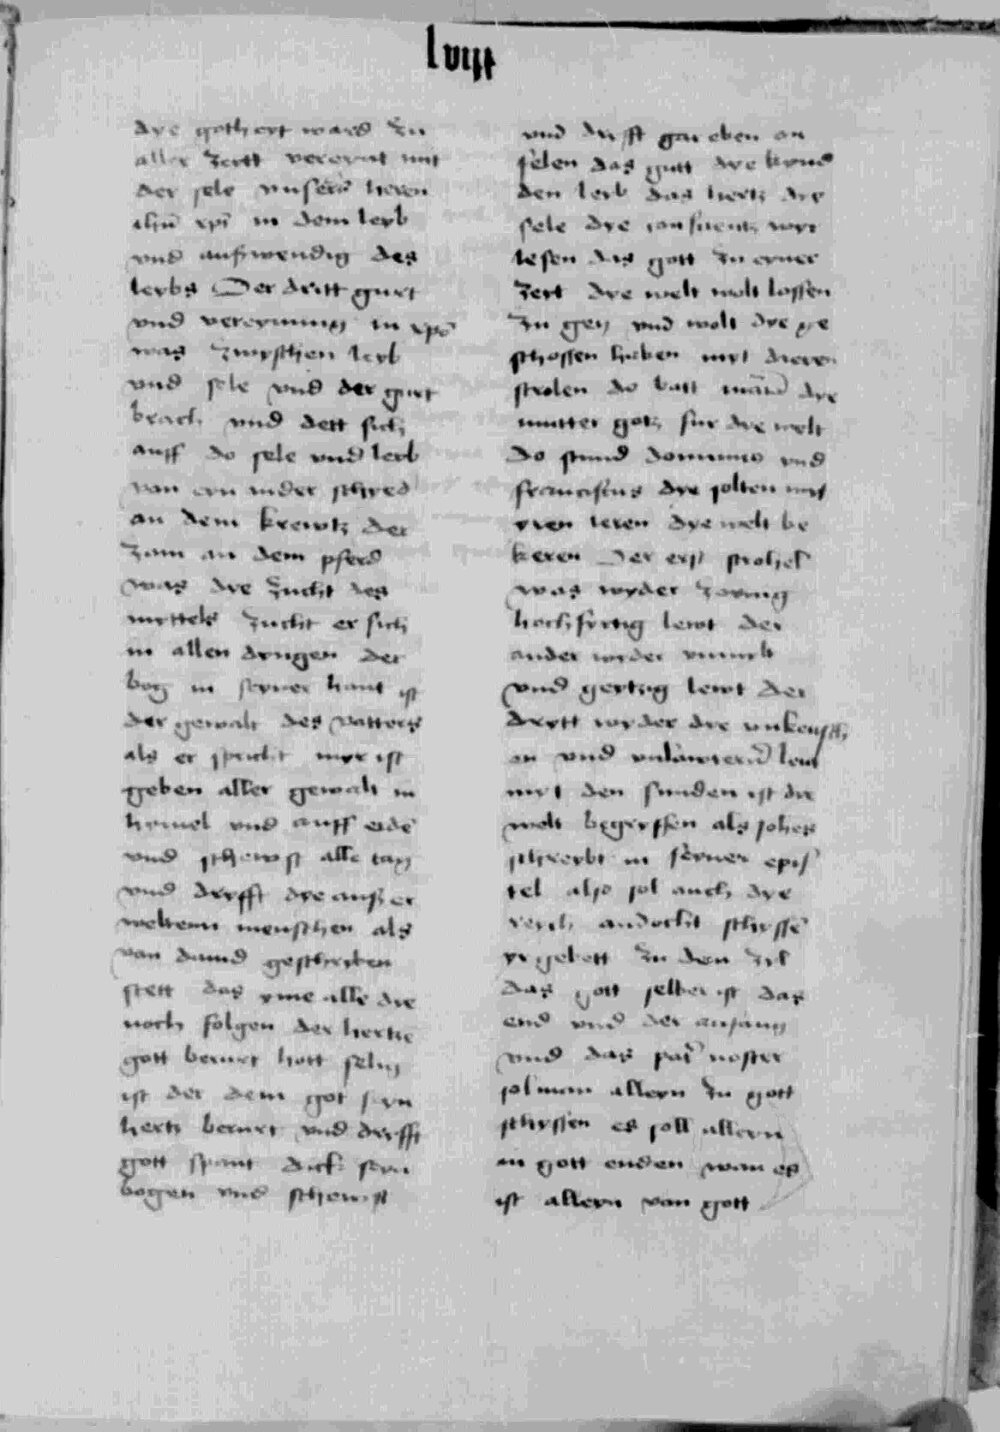 lviii
dye gotheyt ward zu
aller zeytt vereynt mit
der sele unsers heren
ihū xpī in dem leyb
vnd außwendig des
leybs Der dritt gurt
vnd vereynung in xpō
was zwyschen leyb
vnd sele vnd der gurt
brach vnd dett sich
auff do sele vnd leyb
von eyn ander schyed
an dem krewtz der
zam an dem pferd
was dye zucht des
myttels zucht er sich
in allen dyngen der
bog in seyner hant ist
der gewalt des vatters
als er spricht myr ist
geben aller gewalt in
hymel vnd auff erdē
vnd schewst alle tag
vnd dryfft dye auß er
welten menschen als
von dauid geschryben
stett das yme alle dye
noch folgen der hertze
gott berurt hott selig
ist der dem got seyn
hertz berurt vnd dryfft
gott spant dick seyn
bogen vnd schewst
vnd drifft gar eben an
selen das gutt dye kynd
den leyb das hertz dye
sele dye consientz wyr
lesen das gott zu eyner
zeyt dye welt wolt lossen
zu gen vnd wolt dye ge
schossen haben myt dreyen
strolen do batt maria dye
mutter gotz fur dye welt
do stund dominus vnd
franciscus dye solten myt
yren leren dye welt be
keren Der erst strohel
was wyder zornig
hochfertig lewt der
ander wyder
vnd geytzig lewt der
drytt wyder dye vnkeusch
en vnd lewt
myt den sunden ist die
welt begryffen als johes
schreybt in seyner epis
tel also sol auch dye
andocht schyssē
yr gebett zu den zyl
das gott selber ist das
end vnd der anfang
vnd das pat noster
sol man alleyn zu gott
schyssen es soll alleyn
in gott enden wan es
ist alleyn von gott